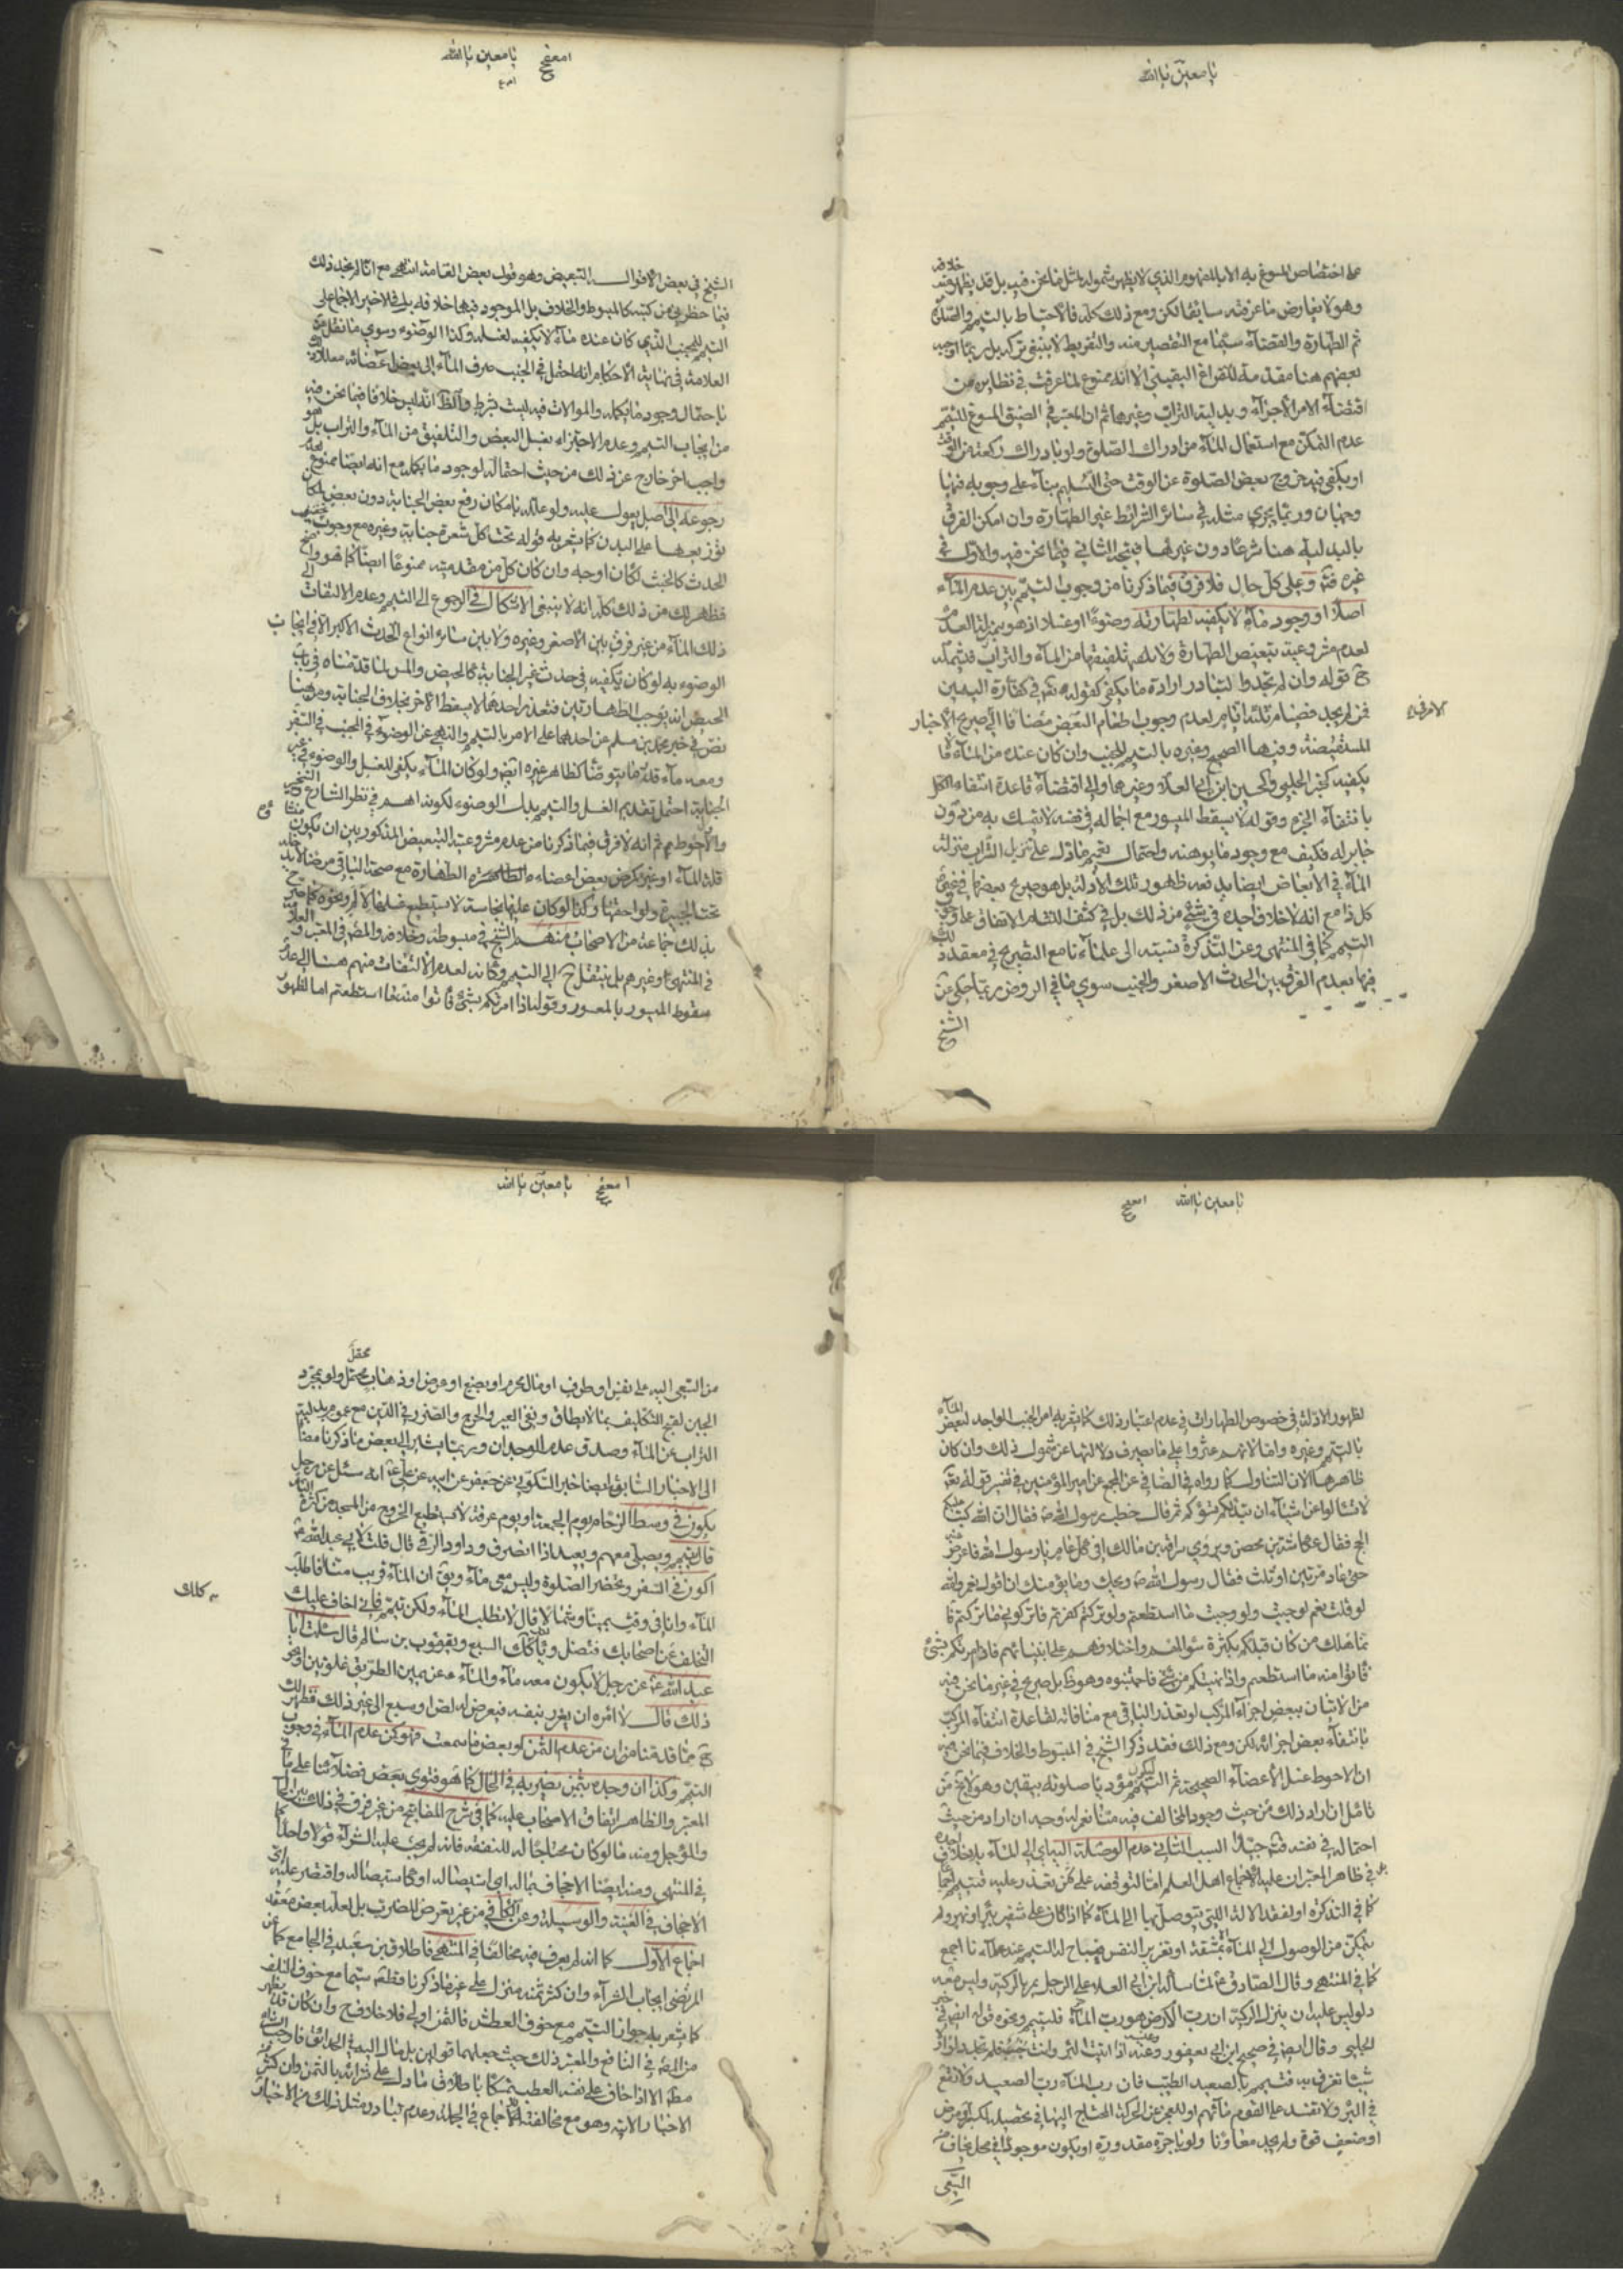 يا معين يا الله
على اختصاص المسوغ به الا بالمفهوم الذي لا يظهر شموله لمثل ما نحن فيه بل قد يظهر منه خلافه
وهو لا يعارض ما عرفته سابقا لكن ومع ذلك كله فالاحتياط بالتيمم والصلاة
ثم الطهارة والقضاء سيما مع التقصير منه والتفريط لا ينبغي تركه بل ربما اوجبه
بعضهم هنا مقدمة للفراغ اليقيني الا انه ممنوع لما عرفت في نظايره من
اقتضاء الامر الاجزاء وبدلية التراب وغيرها ثم ان المعتبر في الضيق المسوغ للتيمم
عدم التمكن مع استعمال الماء من ادراك الصلوة ولو بادراك ركعة من الوقت
او يكفي فيه خروج بعض الصلوة عن الوقت حتى التسليم بناء على وجوبه فيها
وجهان وربما يجري مثله في سائر الشرائط غير الطهارة وان امكن الفرق
بالبدلية هنا شرعا دون غيرها فيتجه الثاني فيما نحن فيه والاول في
غيره فت وعلى كل حال فلا فرق فيما ذكرنا من وجوب التيمم بين عدم الماء
اصلا او وجود ماء لا يكفيه لطهارته وضوءا او غسلا اذ هو بمنزلة العدم
لعدم مشروعية تبعيض الطهارة ولا تلفيقها من الماء والتراب فيشمله
ح قوله وان لم تجدوا لتبادر ارادة ما يكفي كقوله تعالى في كفارة اليمين
فمن لم يجد فصيام ثلثة ايام لعدم وجوب اطعام البعض مضافا الى صريح الاخبار
المستفيضة وفيها الصحيح وغيره بالتيمم للجنب وان كان عنده من الماء ما
يكفيه كخبر الحلبي والحسين ابن ابي العلا وغيرهما والى اقتضاء قاعدة انتفاء الكل
بانتفاء الجزء وقوله لا يسقط الميسور مع اجماله في نفسه لا يتمسك به من دون
جابر له فكيف مع وجود ما يوهنه واحتمال تعميم ما دل على تنزيل التراب منزلة
الماء في الابعاض ايضا يدفعه ظهور تلك الادلة بل هو صريح بعضها في غيره
كل ذا مع انه لا خلاف اجده في شيء من ذلك بل في كشف اللثام الاتفاق على
التيمم كما في المنتهى وعن التذكرة نسبته الى علمائنا مع التصريح في معقد
فيها بعدم الفرق بين الحدث الاصغر والجنب سوى ما في الروض ربما حكي عن
الشيخ
يا معين يا الله
الشيخ في بعض الاقوال التبعيض وهو قول بعض العامة انتهى مع انا لم نجد ذلك
فيما حضرني من كتبه كالمبسوط والخلاف بل الموجود فيها خلافه بل في الاخير الاجماع على
التيمم للجنب الذي كان عنده ماء لا يكفيه لغسله وكذا الوضوء وسوى ما نقل من
العلامة في نهاية الاحكام انه احتمل في الجنب صرف الماء الى بعض اعضائه معللا له
باحتمال وجود ما يكمله والموالات فيه ليست بشرط والظ انه ليس خلافا فيما نحن فيه
من ايجاب التيمم وعدم الاجتزاء بغسل البعض والتلفيق من الماء والتراب بل هو
واجب اخر خارج عن ذلك من حيث احتمال لوجود ما يكمله مع انه ايضا ممنوع
رجوعه الى اصل يعول عليه ولو علله بامكان رفع بعض الجنابة دون بعض
توزيعها على البدن كما يشعر به قوله تحت كل شعرة جنابة وغيره مع وجوب
الحدث كالخبث لكان اوجه وان كان كل من مقدمتيه ممنوعا ايضا كما هو واضح
فظهر لك من ذلك كله انه لا ينبغي الاشكال في الرجوع الى التيمم وعدم الالتفات الى
ذلك الماء من غير فرق بين الاصغر وغيره ولا بين سائر انواع الحدث الاكبر الا في ايجاب
الوضوء به لو كان يكفيه في حدث غير الجنابة كالحيض والمس لما قدمناه في باب
الحيض انه يوجب الطهارتين فتعذر احدهما لا يسقط الاخر بخلاف الجنابة ومن هنا
نص في خبر محمد بن مسلم عن احدهما على الامر بالتيمم والنهي عن الوضوء في المجنب في السفر
ومعه ماء قدر ما يتوضأ كظاهر غيره ايضا ولو كان الماء يكفي للغسل والوضوء في غير
الجنابة احتمل تقديم الغسل والتيمم بدل الوضوء لكونه اهم في نظر الشارع
والاحوط ثم انه لا فرق فيما ذكرنا من عدم مشروعية التبعيض المذكور بين ان يكون
قلة الماء او غيره كمرض بعض اعضاء الطهارة مع صحة الباقي مرضا لا يدخله
تحت الجبيرة ولواحقها وكذا لو كان عليها نجاسة لا يستطيع غسلها لالم ونحوه كما صرح
بذلك جماعة من الاصحاب منهم الشيخ في مبسوطه وخلافه والمص في المعتبر والعلامة
في المنتهى وغيرهم بل ينتقل ح الى التيمم وكانه لعدم الالتفات منهم هنا الى عدم
سقوط الميسور بالمعسور وقوله اذا امرتكم بشيء فاتوا منه ما استطعتم اما لظهور
يا معين يا الله
لظهور الادلة في خصوص الطهارات في عدم اعتبار ذلك كما يشعر به امر الجنب الواجد لبعض الماء
بالتيمم وغيره واما لانهم عثروا على ما يصرف دلالتها عن شمول ذلك وان كان
ظاهرها الان التناول كما رواه في الصافي عن المجمع عن امير المؤمنين في تفسير قوله تعالى
لا تسئلوا عن اشياء ان تبد لكم تسؤكم ثم قال خطب رسول الله ص فقال ان الله كتب عليكم
الحج فقال عكاشة بن محصن ويروى سراقة بن مالك افي كل عام يا رسول الله فاعرض عنه
حتى عاد مرتين او ثلث فقال رسول الله ص ويحك وما يؤمنك ان اقول نعم والله
لو قلت نعم لوجبت ولو وجبت ما استطعتم ولو تركتم كفرتم فاتركوني ما تركتكم فا
نما هلك من كان قبلكم بكثرة سؤالهم واختلافهم على انبيائهم فاذا امرتكم بشيء
فاتوا منه ما استطعتم واذا نهيتكم عن شيء فاجتنبوه وهو ظ بل صريح في غير ما نحن فيه
من الاتيان ببعض اجزاء المركب لو تعذر الباقي مع منافاته لقاعدة انتفاء المركب
بانتفاء بعض اجزائه لكن ومع ذلك فقد ذكر الشيخ في المبسوط والخلاف فيما نحن فيه
ان الاحوط غسل الاعضاء الصحيحة ثم التيمم ليكون مؤديا صلوته بيقين وهو لا يخ من
تامل ان اراد ذلك من حيث وجود المخالف فيه منا نعم له وجه ان اراد من حيث
احتماله في نفسه فت جيدا السبب الثاني عدم الوصلة اليه اي الى الماء بلا خلاف اجده
في ظاهر المعتبر ان عليه اجماع اهل العلم اما لتوقفه على ثمن تعذر عليه فيتيمم اجماعا
كما في التذكرة او لفقد الالة التي يتوصل بها الى الماء كما اذا كان على شفير بئر او نهر ولم
يتمكن من الوصول الى الماء الا بمشقة او تغرير النفس فيباح له التيمم عند علمائنا اجمع
كما في المنتهى وقال الصادق ع لما سأله ابن ابي العلا عن الرجل يمر بالركية وليس معه
دلو ليس عليه ان ينزل الركية ان رب الارض هو رب الماء فليتيمم ونحوه قوله ايضا في خبر
الحلبي وقال ايضا في صحيح ابن ابي يعفور وعنبسة اذا اتيت البئر وانت جنب فلم تجد دلوا ولا
شيئا تغرف به فتيمم بالصعيد الطيب فان رب الماء رب الصعيد ولا تقع
في البئر ولا تفسد على القوم مائهم او للعجز عن الحركة المحتاج اليها في تحصيله لكبر او مرض
او ضعف قوة ولم يجد معاونا ولو باجرة مقدورة او يكون موجودا في محل يخاف من
السعي
يا معين يا الله
من السعي اليه على نفس او طرف او مال محترم او بضع او عرض او ذهاب عقل ولو بمجرد
الجبن لقبح التكليف بما لا يطاق ونفي العسر والحرج والضرر في الدين مع عموم بدلية
التراب عن الماء وصدق عدم الوجدان وربما يشير الى بعض ما ذكرنا مضافا
الى الاخبار السابقة ايضا خبر السكوني عن جعفر عن ابيه عن علي ع انه سئل عن رجل
يكون في وسط الزحام يوم الجمعة او يوم عرفة لا يستطيع الخروج من المسجد من كثرة الناس
قال يتيمم ويصلي معهم ويعيد اذا انصرف وداود الرقي قال قلت لابي عبد الله ع
اكون في السفر وتحضر الصلوة وليس معي ماء ويق ان الماء قريب منا فاطلب
الماء وانا في وقت يمينا وشمالا قال لا تطلب الماء ولكن تيمم فاني اخاف عليك
التخلف عن اصحابك فتضل وياكلك السبع ويعقوب بن سالم قال سئلت ابا
عبد الله ع عن رجل لا يكون معه ماء والماء عن يمين الطريق غلوتين او نحو
ذلك قال لا امره ان يغرر بنفسه فيعرض له لص او سبع الى غير ذلك فظهر لك
ح مما قدمنا من ان من عدم الثمن او بعض ما سمعت فهو كمن عدم الماء في وجوب
التيمم وكذا ان وجده بثمن يضر به في الحال كما هو فتوى بعض فضلائنا على ما في
المعتبر والظاهر اتفاق الاصحاب عليه كما في شرح المفاتيح من غير فرق في ذلك بين الحال
والمؤجل ومنه ما لو كان محتاجا له للنفقة فانه لم يجب عليه الشراء قولا واحدا كما
في المنتهى ومنه ايضا الاجحاف بماله اي استيصاله او كاستيصاله واقتصر عليه
الاجحاف في الغنية والوسيلة وعن الكافي من غير تعرض للضرر بل لعله بعض معقد
اجماع الاول كما انه لم يعرف فيه مخالفا في المنتهى فاطلاق ابن سعيد في الجامع كما عن
المرتضى ايجاب الشراء وان كثر ثمنه منزل على غير ما ذكرنا قطعا سيما مع خوف التلف
كما يشعر به جواز التيمم مع خوف العطش فالثمن اولى فلا خلاف ح وان كان قد يظهر
من المص في النافع والمعتبر ذلك حيث جعلهما قولين بل مال اليه في الحدائق فاوجب الشراء
مطلقا الا اذا خاف على نفسه العطب تمسكا باطلاق ما دل على شرائه بالثمن وان كثر من
الاخبار الاتية وهو مع مخالفته الاجماع في الجملة وعدم تبادر مثل ذلك من الاخبار